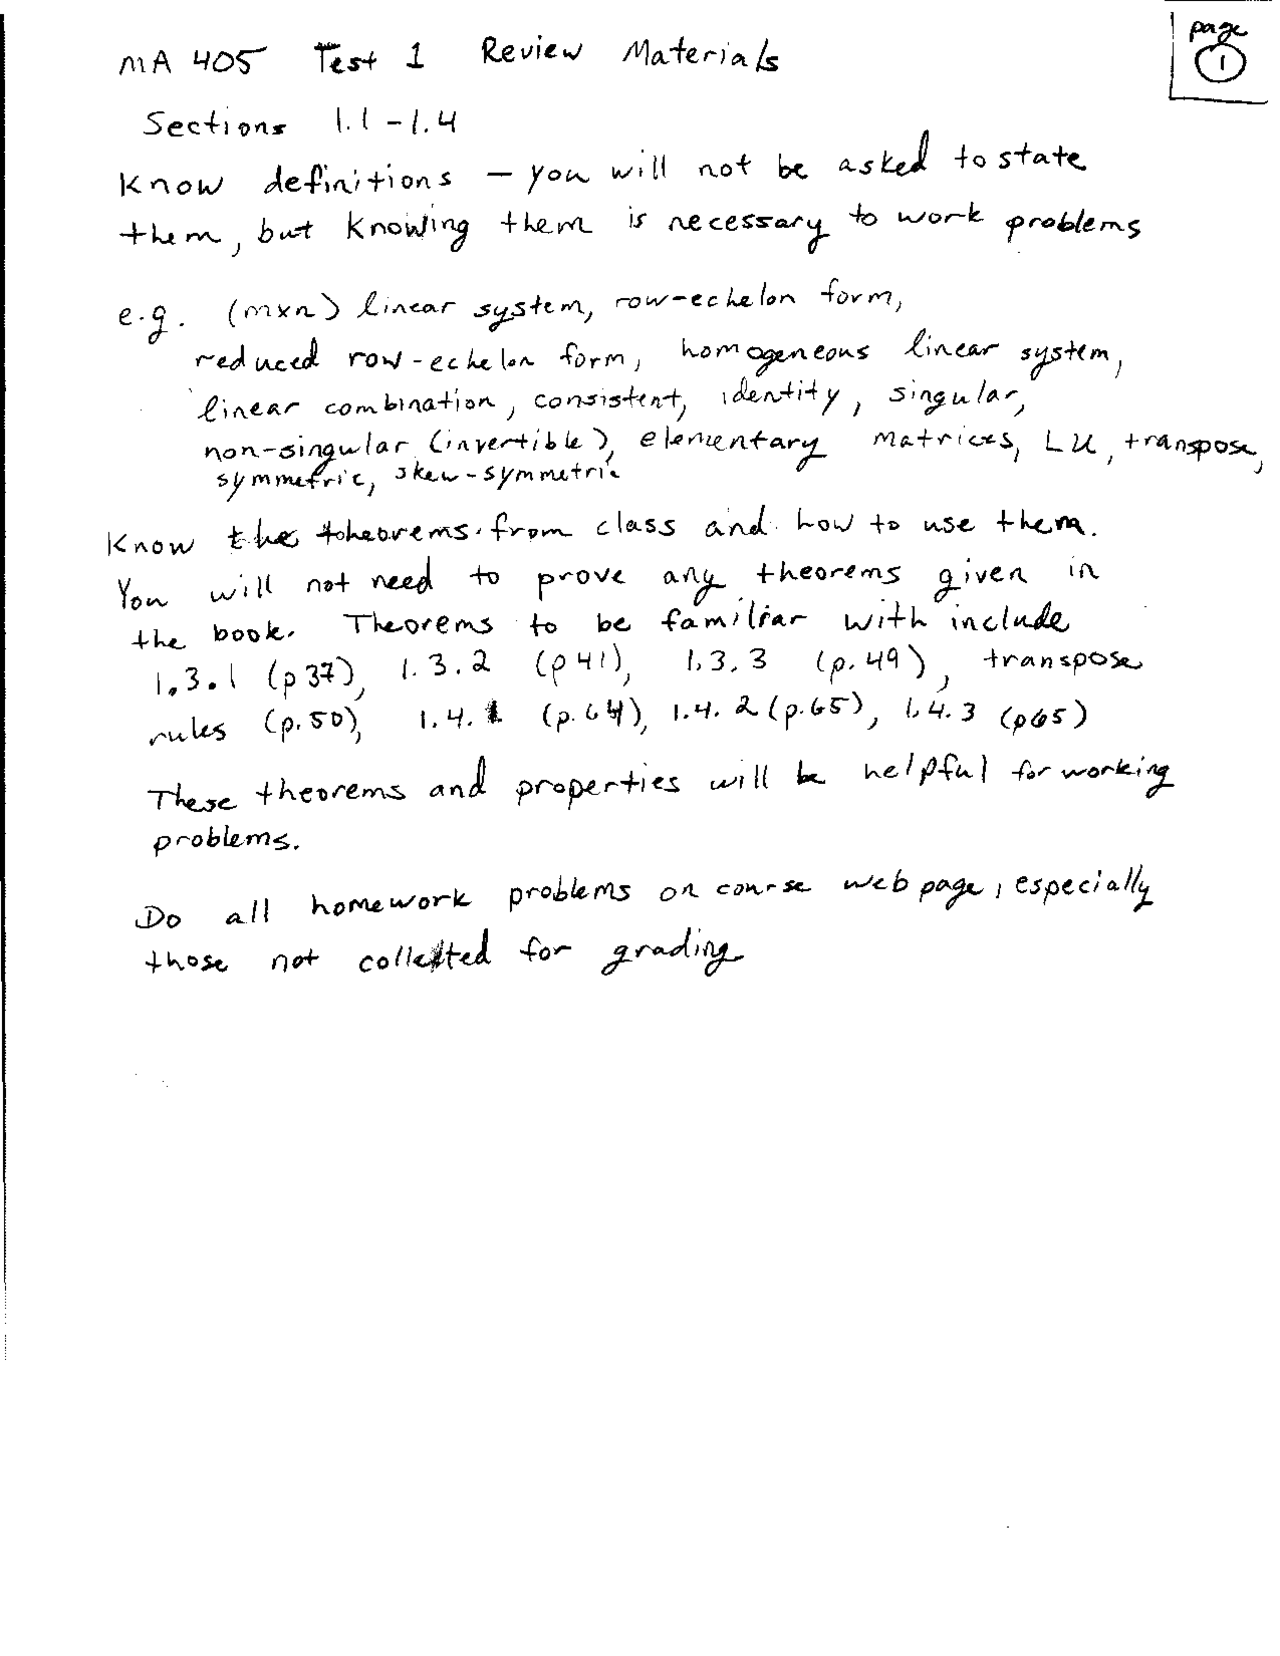 page
1
MA 405 Test 1 Review Materials
Sections 1.1-1.4
Know definitions - you will not be asked to state
them, but knowing them is necessary to work problems
e.g. (mxn) linear system, row-echelon form,
reduced row-echelon form, homogeneous linear system,
linear combination, consistent, identity, singular,
non-singular (invertible), elementary matrices, LU, transpose,
symmetric, skew-symmetric
Know the theorems from class and how to use them.
You will not need to prove any theorems given in
the book. Theorems to be familiar with include
1.3.1 (p37), 1.3.2 (p41), 1.3.3 (p.49), transpose
rules (p.50), 1.4.1 (p.64), 1.4.2 (p.65), 1.4.3 (p65)
These theorems and properties will be helpful for working
problems.
Do all homework problems on course web page, especially
those not collected for grading